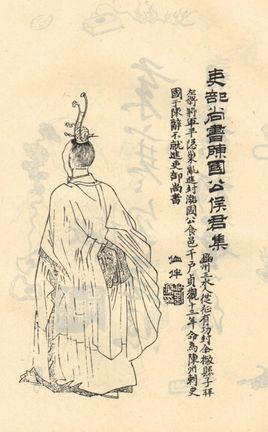 吏部尚書陳國公侯君集
豳州三水人從征有功封全椒縣子拜
左衛將軍平隱巢亂進封潞國公食邑千戶貞觀十三年命為陳州刺史
國于陳辭不就進吏部尚書